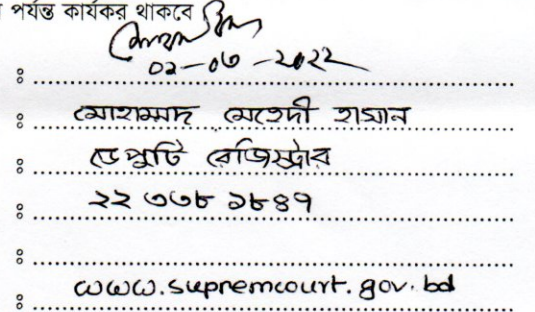 পর্যন্ত কার্যকর থাকবে
ঃ
ঃ মোহাম্মাদ মেহেদী হাসান
ঃ ডেপুটি রেজিস্ট্রার
ঃ ২২ ৩৩৮ ১৮৪৭
ঃ
ঃ www.supremcourt.gov.bd